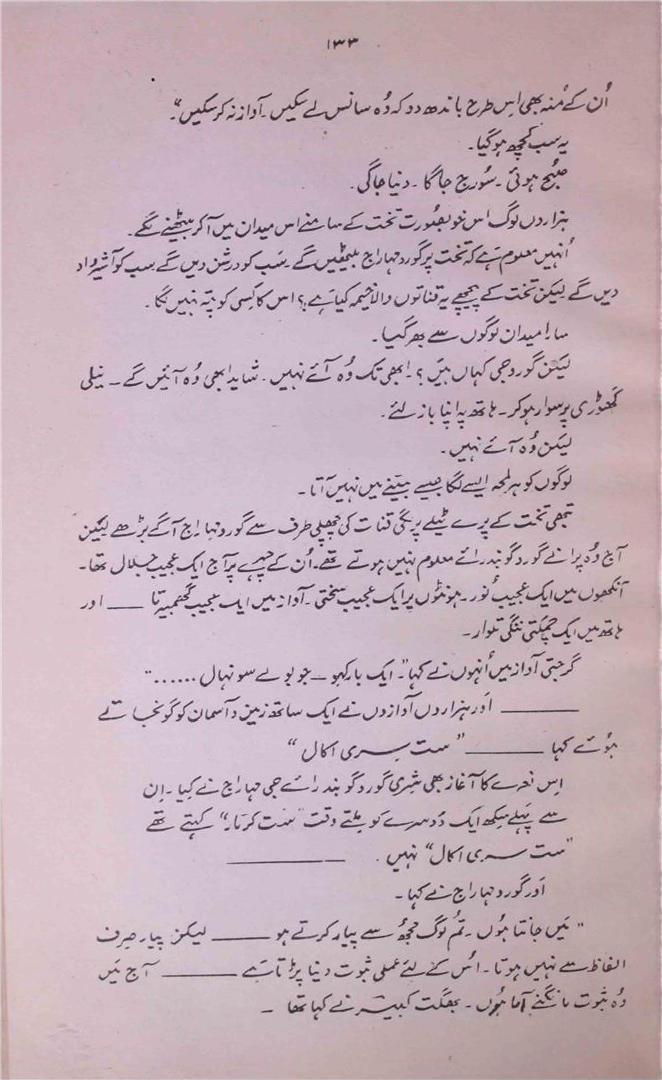 ۱۳۳
اُن کے مُنہ بھی اِس طرح باندھ دو کہ وُہ سانس لے سکیں۔ آواز نہ کر سکیں"۔
یہ سب کچھ ہو گیا۔
صُبح ہوئی۔ سُورج جاگا۔ دنیا جاگی۔
ہزاروں لوگ اس خوبصُورت تخت کے سامنے اس میدان میں آ کر بیٹھنے لگے۔
اُنہیں معلوم ہے کہ تخت پر گورو مہاراج بیٹھیں گے۔ سب کو درشن دیں گے۔ سب کو آشیرواد
دیں گے لیکن تخت کے پیچھے یہ قناتوں والا خیمہ کیا ہے؟ اس کا کِسی کو پتہ نہیں لگا۔
سارا میدان لوگوں سے بھر گیا۔
لیکن گورو جی کہاں ہیں؟ ابھی تک وُہ آئے نہیں۔ شاید ابھی وُہ آئیں گے۔ نیلی
گھوڑی پر سوار ہو کر۔ ہاتھ پہ اپنا باز لئے۔
لیکن وُہ آئے نہیں۔
لوگوں کو ہر لمحہ ایسے لگا جیسے بیتنے میں نہیں آتا۔
تبھی تخت کے پرے ٹیلے پر لگی قنات کی پچھلی طرف سے گورو مہاراج آگے بڑھے لیکن
آج وُہ پُرانے گورو گوبند رائے معلوم نہیں ہوتے تھے۔ اُن کے چہرے پر آج ایک عجیب جلال تھا۔
آنکھوں میں ایک عجیب نُور۔ ہونٹوں پر ایک عجیب سختی۔ آواز میں ایک عجیب گھمبیرتا ــــــ اور
ہاتھ میں ایک چمکتی ننگی تلوار۔
گرجتی آواز میں اُنہوں نے کہا"۔ ایک بار کہو ــ جو بولے سو نہال ......"
ــــــــــ اور ہزاروں آوازوں نے ایک ساتھ زمین و آسمان کو گونجاتے
ہوئے کہا ــــــــــ "ست سری اکال"
اِس نعرے کا آغاز بھی شری گورو گوبند رائے جی مہاراج نے کیا۔ اِن
سے پہلے سِکھ ایک دُوسرے کو مِلتے وقت "ست کرتار" کہتے تھے
"ست سری اکال" نہیں۔ ــــــــــــــ
اور گورو مہاراج نے کہا۔
"میں جانتا ہوں۔ تُم لوگ مُجھ سے پیار کرتے ہو ــــــــ لیکن پیار صِرف
الفاظ سے نہیں ہوتا۔ اُس کے لئے عملی ثبوت دینا پڑتا ہے ــــــــــ آج میں
وُہ ثبوت مانگنے آیا ہُوں۔ بھگت کبیر نے کہا تھا ۔